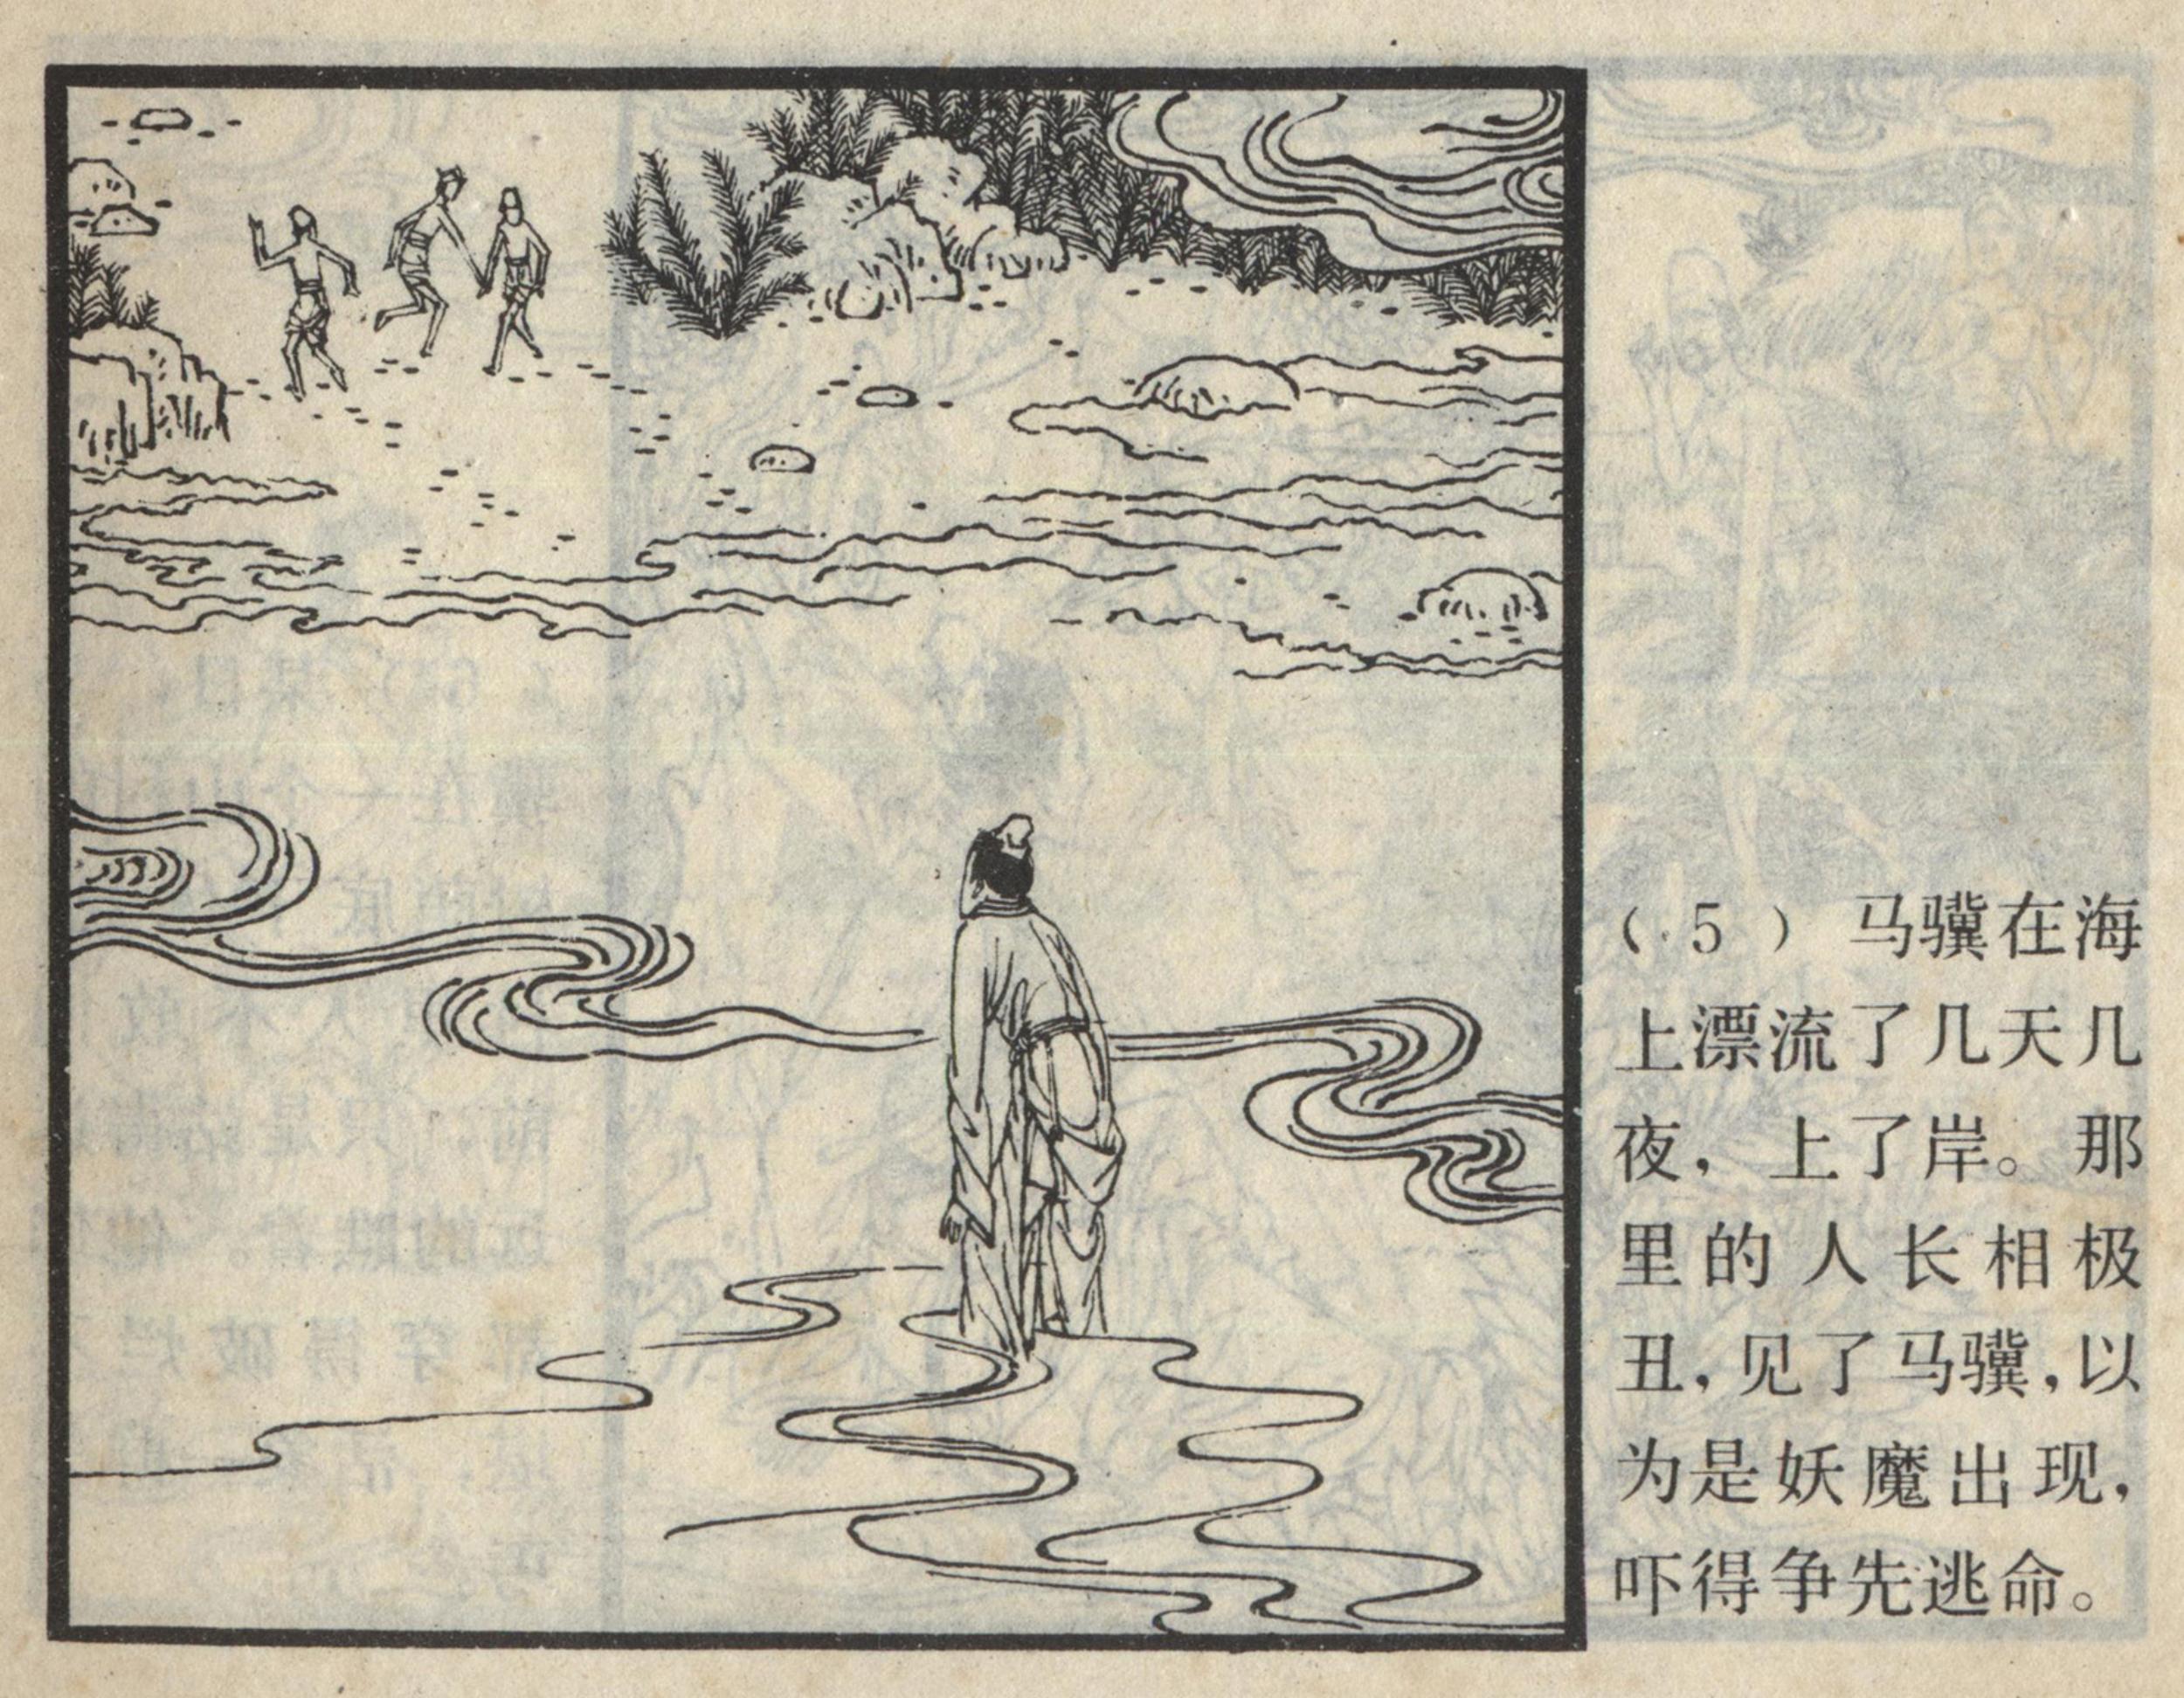 （5）马骥在海
上漂流了几天几
夜，上了岸。那
里的人长相极
丑，见了马骥，以
为是妖魔出现，
吓得争先逃命。